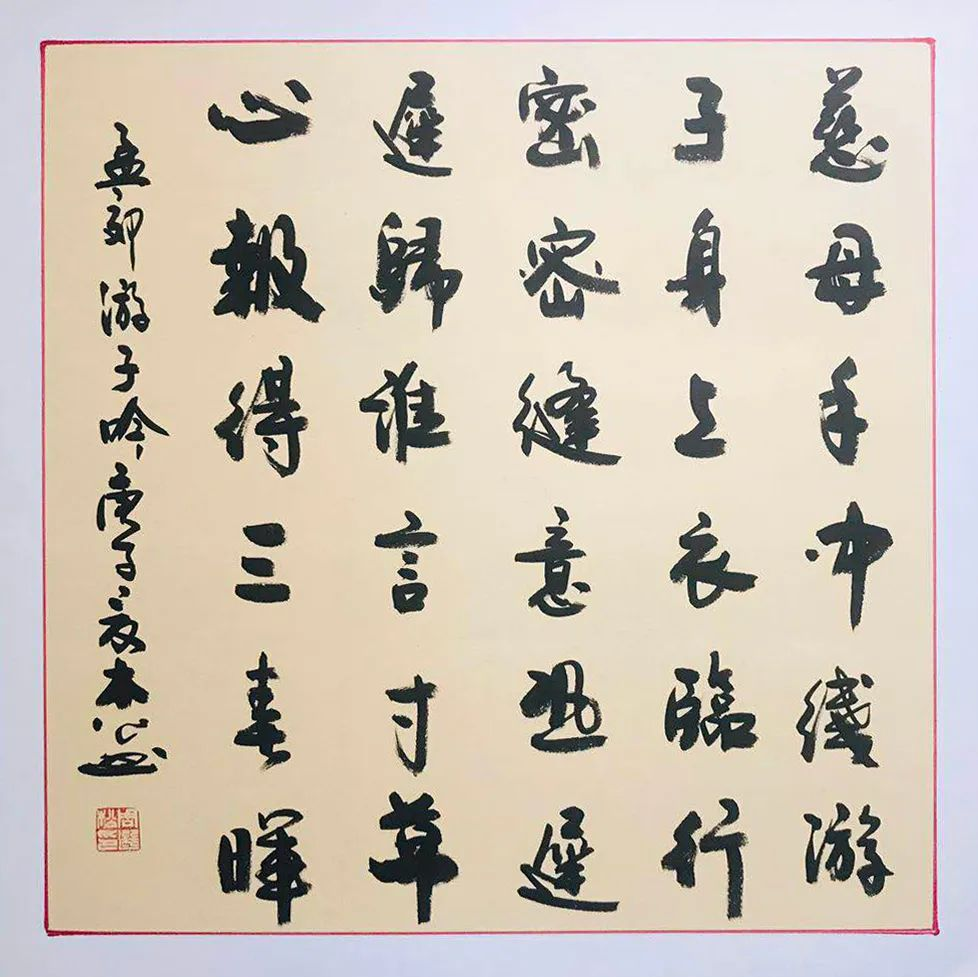 慈母手中綫游
子身上衣臨行
密密縫意恐遲
遲歸誰言寸草
心報得三春暉
孟郊游子吟庚子夏木公